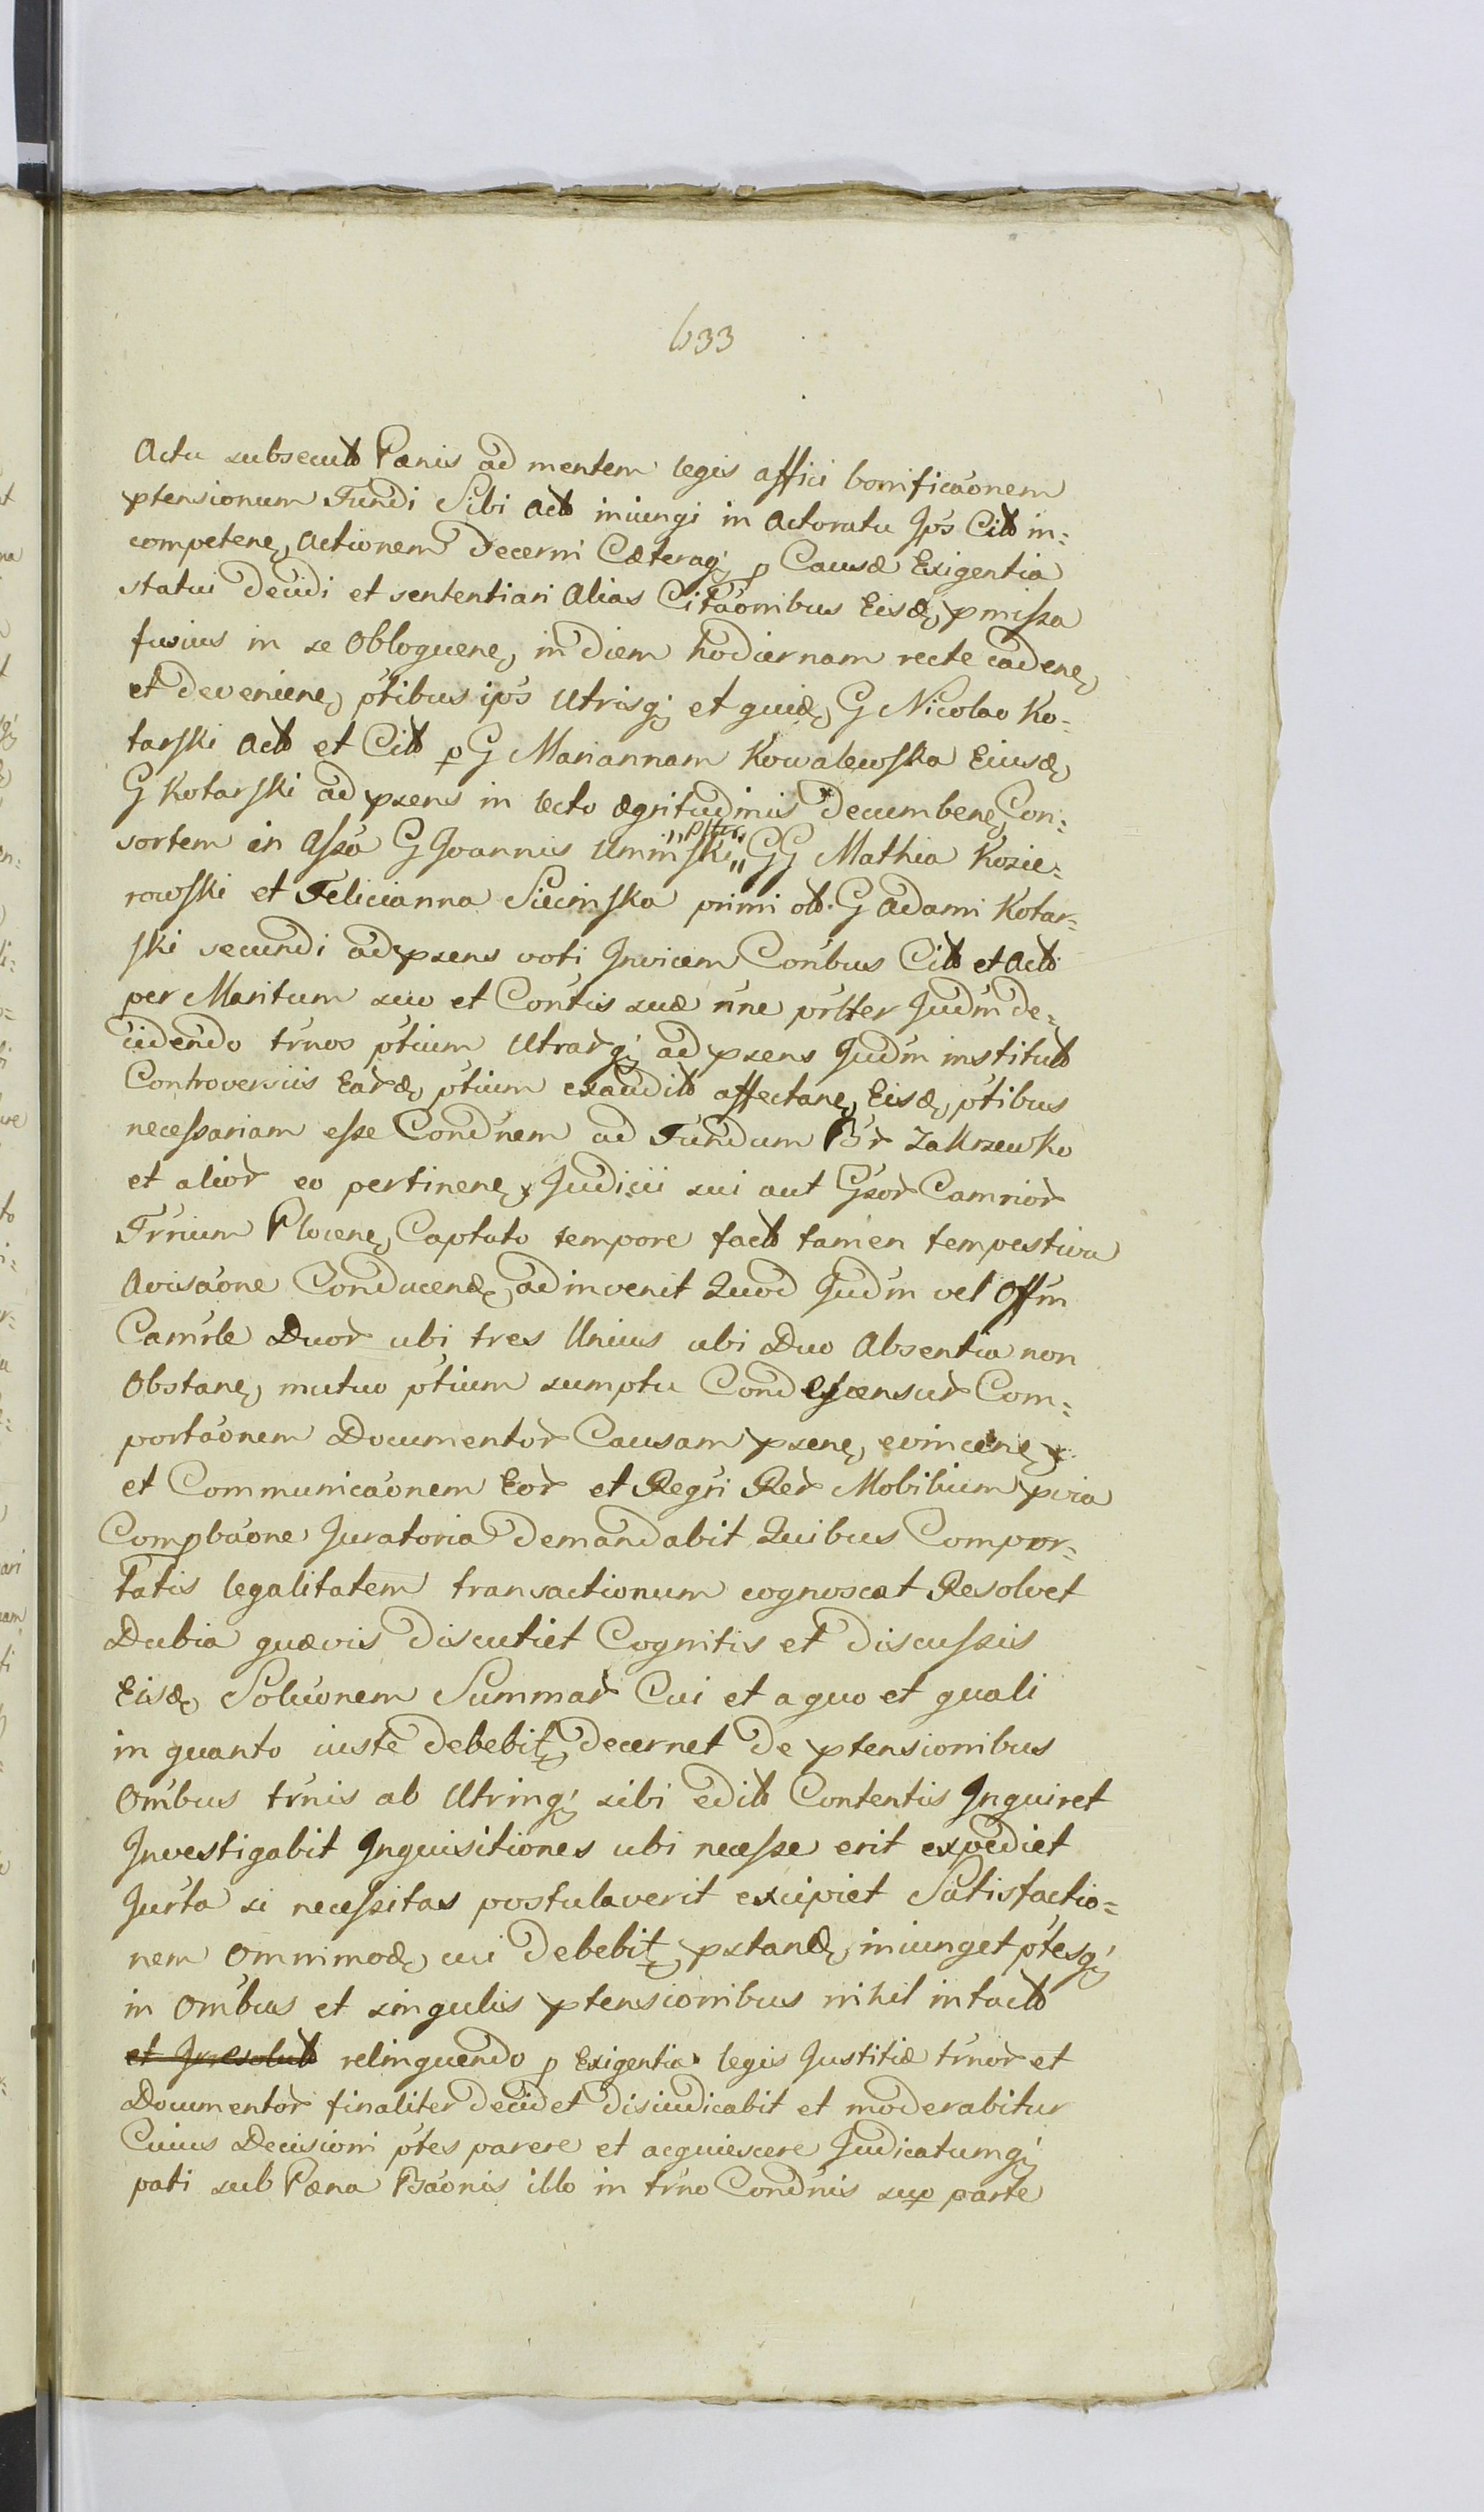 633
Actu subsecut Pænis ad mentem legis affici bonificaonem
ptensionum Fundi Sibi Act iniungi in Actoratu Jps Cit in=
competen, Actionem Decerni Cæteraq; p Causæ Exigentia
statui Decidi et sententiari Alias Citaonibus Eisd, pmissa
fusius in se Obloquen, in Diem hodiernam recte caden,
et Devenien, ptibus ips Utrisq; et quid, G Nicolao Ko=
tarski Act et Cit p G Mariannam Kowalewska Eiusd,
G Kotarski ad psens in lecto ægritudinis * Decumben, Con=
sortem in Assa G Joannis Uminski „Pltr„ GG Mathia Kozie=
rowski et Felicianna Siecinska primi ol. G Adami Kotar=
ski secundi ad psens voti Invicem Conbus Cit et Act
per Maritum suo et Contis suæ nne prlter Judm de=
cidendo trnos ptium Utrarq; ad psens Judm institut
Controversiis Eard, ptium exaudit affectan, Eisd, ptibus
necessariam esse Condnem ad Fundum Br Zakrzewko
et alior eo pertinen, Judicii sui aut Gsor Camrior
Trrium Plocen, Captato tempore fact tamen tempestiva
Avisaone Conducend, adinvenit Quod Judm vel Offm
Camrle Duor ubi tres Unius ubi Duo Absentia non
Obstan, mutuo ptium sumptu Condescensur Com=
portaonem Documentor Causam psen, evincen, x
et Communicaonem Eor et Regri Rer Mobilium pvia
Compbaone Juratoria Demandabit Quibus Compor=
tatis legalitatem transactionum cognoscet Resolvet
Dubia quævis Discutiet Cognitis et Discussis
Eisd, Soluonem Summar Cui et a quo et quali
in quanto iuste Debebit, Decernet De ptensionibus
Ombus trnis ab Utrinq; sibi edit Contentis Inquiret
Investigabit Inquisitiones ubi necesse erit expediet
Jurta si necessitas postulaverit excipiet Satisfactio=
nem Omnimod, cui Debebit, pstand, iniunget ptesq;
in Ombus et singulis ptensionibus nihil intact
et Irresolut relinquendo p Exigentia legis Justitiæ trnor et
Documentor finaliter Decidet Disiudicabit et moderabitur
Cuius Decisioni ptes parere et acquiescere Judicatumq;
pati sub Pæna Baonis illo in trno Condnis sup parte